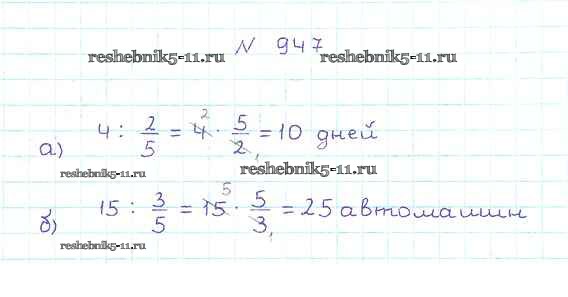 N 947
reshebnik5-11.ru reshebnik5-11.ru
а) 4 : 2/5 = 4 2 · 5/2 1 = 10 дней
reshebnik5-11.ru reshebnik5-11.ru
б) 15 : 3/5 = 15 5 · 5/3 1 = 25 автомашин
reshebnik5-11.ru